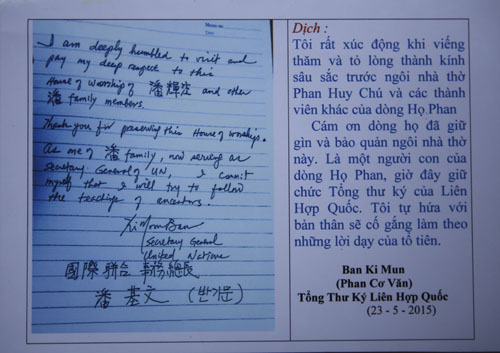 I am deeply humbled to visit and
pay my deep respect to this
House of worship of 潘輝注 and other
潘 family members.
Thank you for preserving this House of worship.
As one of 潘 family, now serving as
Secretary General of UN, I commit
myself that I will try to follow
the teachings of ancestors.
Ki Moon Ban
Secretary General
United Nations
國際聯合 事務總長
潘 基文 (반기문)
Dịch :
Tôi rất xúc động khi viếng
thăm và tỏ lòng thành kính
sâu sắc trước ngôi nhà thờ
Phan Huy Chú và các thành
viên khác của dòng Họ Phan
Cám ơn dòng họ đã giữ
gìn và bảo quản ngôi nhà thờ
này. Là một người con của
dòng Họ Phan, giờ đây giữ
chức Tổng thư ký của Liên
Hợp Quốc. Tôi tự hứa với
bản thân sẽ cố gắng làm theo
những lời dạy của tổ tiên.
Ban Ki Mun
(Phan Cơ Văn)
Tổng Thư Ký Liên Hợp Quốc
(23 - 5 - 2015)